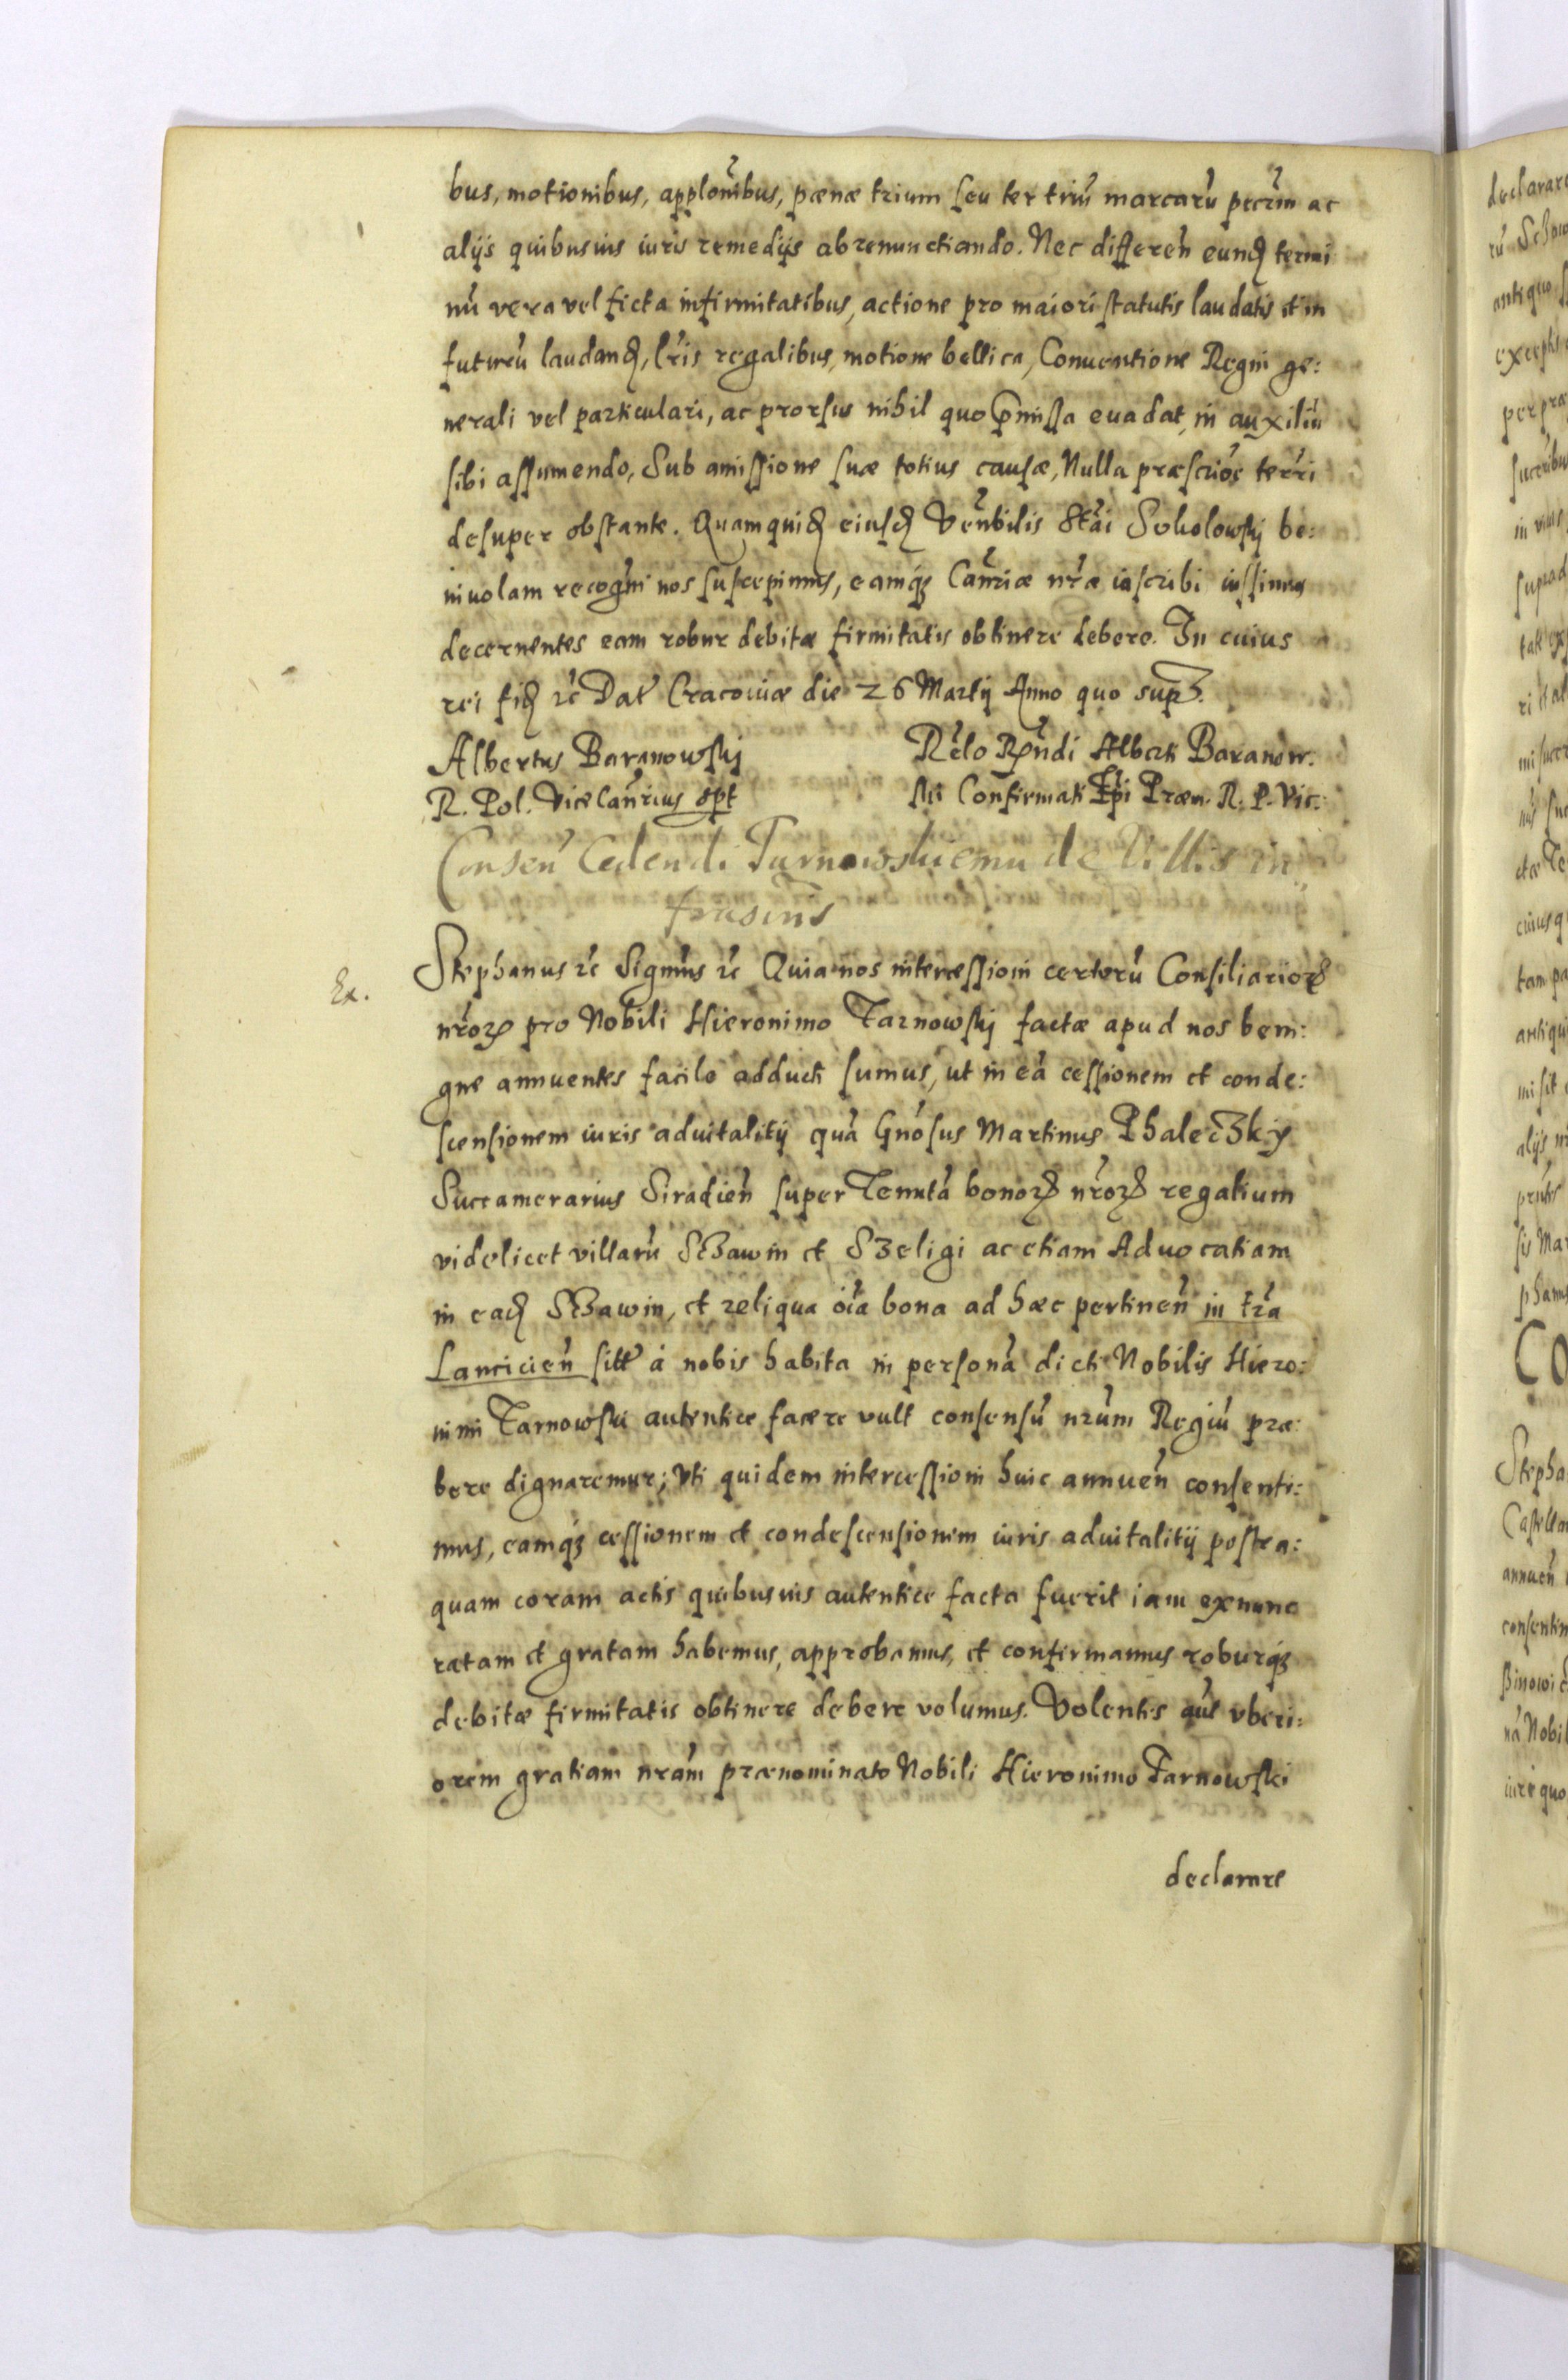 bus, motionibus, applõnibus, pænæ trium seu ter triũ marcarũ pecr̃m ac
alijs quibusuis iuris remedijs abrenunctiando. Nec differeñ eunđ termi
nũ vera vel ficta infirmitatibus, actione pro maiori statutis laudatis et in
futurũ laudanđ, lr̃is regalibus, motione bellica, Conuentione Regni ge:
nerali vel particulari, ac prorsus nihil quo p̃missa euadat, in auxiliũ
sibi assumendo, Sub amissione suæ totius causæ, Nulla præscriõe terr̃i
desuper obstante. Quamquiđ eiusđ Veñbilis Stãi Sokolowskj be:
niuolam recogñi nos suscepimus, eamqȝ Cañriæ nr̃æ inscribi iussimus
decernentes eam robur debitæ firmitatis obtinere debere. In cuius
rei fiđ ꝛc Dat̃ Cracouiæ die 26 Martij Anno quo supȓ.
Albertus Baranowskj
R. Pol. Vicecañrius sp̃t
Rẽlo Rñdi Alberti Baranow.
ski Confirmati Ep̃i Præm. R. P. Vic:
Conseñ Cedendi Tarnowskiemu de Villis in
frascrip̃s
Ex.
Stephanus ꝛc Sigm̃s ꝛc Quia nos intercessioni certorũ Consiliarioꝝ
nr̃oꝝ pro Nobili Hieronimo Tarnowskj factæ apud nos beni:
gne annuentes facile adducti sumus, ut in eã cessionem et conde:
scensionem iuris aduitalitij quã Gñosus Martinus Phaleczky
Succamerarius Siradieñ super Tenutã bonoꝝ nr̃oꝝ regalium
videlicet villarũ SCȝawin et Sȝeligi ac etiam Aduocatiam
in eađ SCȝawin, et reliqua õia bona ad hæc pertineñ in tr̃a
Lancicieñ sitt̃ á nobis habita in personã dicti Nobilis Hiero:
nimi Tarnowski autentice facere vult consensũ nr̃um Regiũ præ:
bere dignaremur; Vti quidem intercessioni huic annueñ consenti:
mus, eamqȝ cessionem et condescensionem iuris aduitalitij postea:
quam coram actis quibusuis autentice facta fuerit iam exnunc
ratam et gratam habemus, approbamus, et confirmamus roburqȝ
debitæ firmitatis obtinere debere volumus. Volentes aũt vberi:
orem gratiam nr̃am prænominato Nobili Hieronimo Tarnowski
declarare